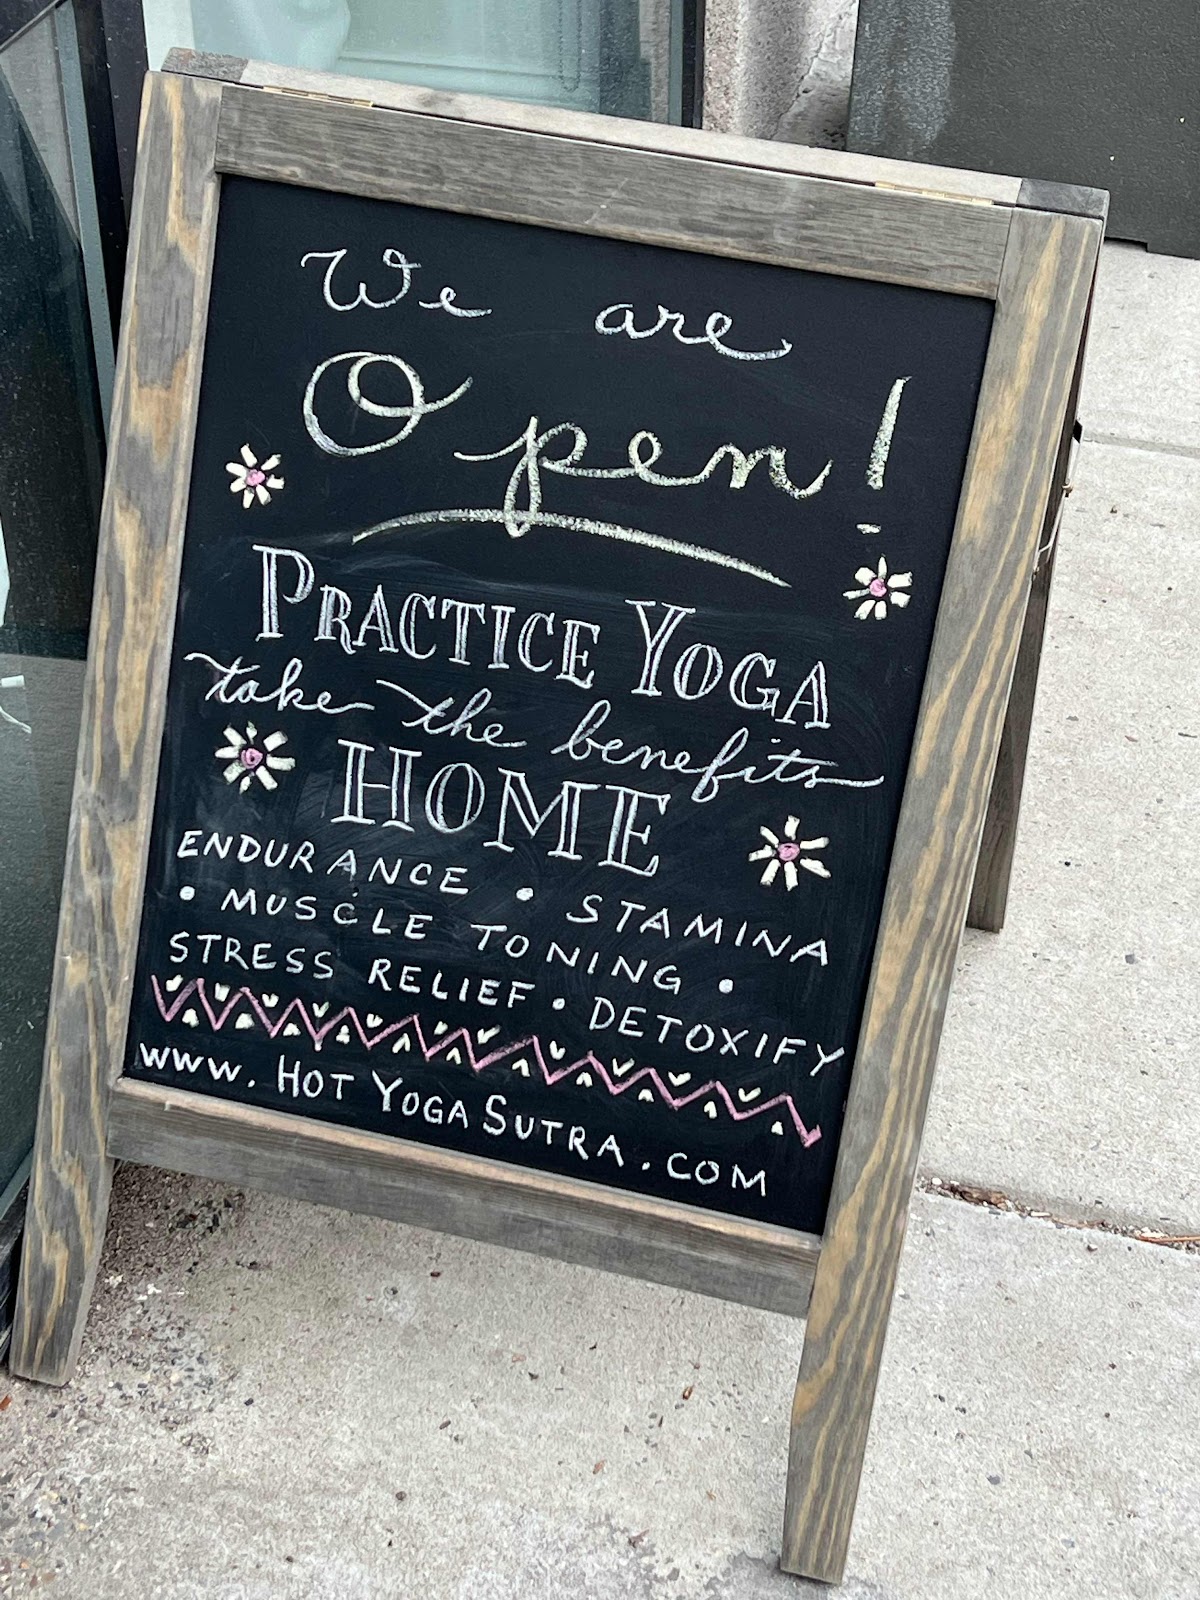 We are
Open!
PRACTICE YOGA
take the benefits
HOME
ENDURANCE • STAMINA
• MUSCLE TONING •
STRESS RELIEF • DETOXIFY
WWW.HOT YOGA SUTRA.COM